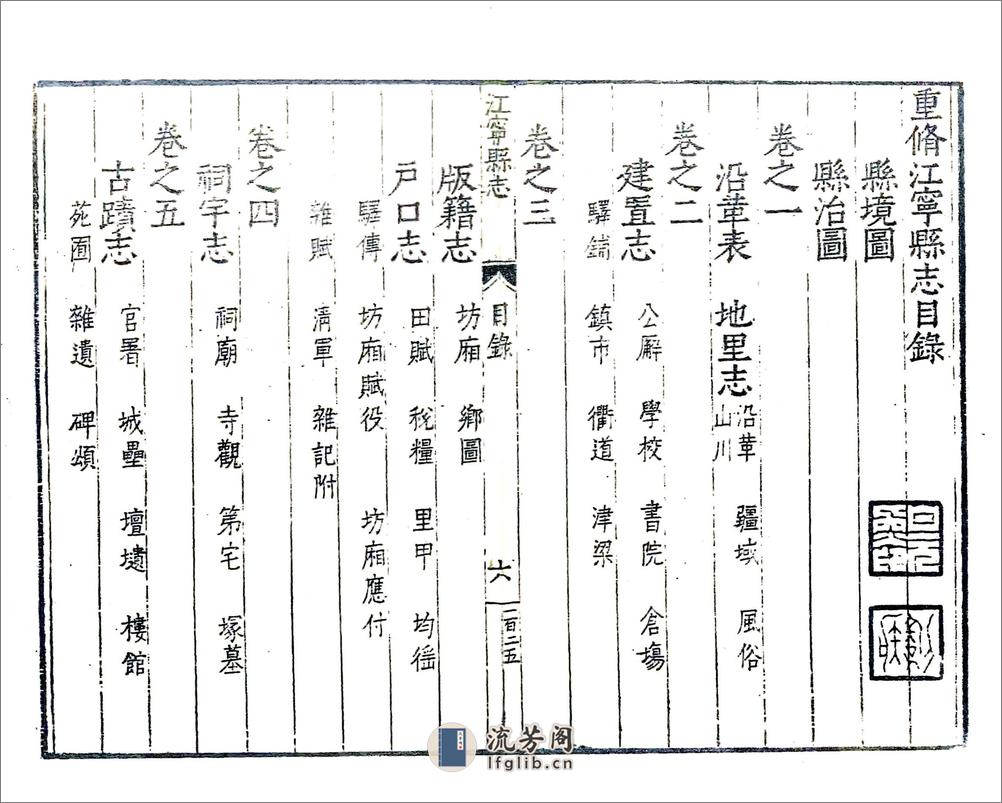 重脩江寧縣志目錄
縣境圖
縣治圖
卷之一
沿革表 地里志 沿革 疆域 風俗
山川
卷之二
建置志 公廨 學校 書院 倉場
驛鋪 鎮市 衢道 津梁
卷之三
江寧縣志 目錄 六 一百二五
版籍志 坊廂 鄉圖
戶口志 田賦 稅糧 里甲 均徭
驛傳 坊廂賦役 坊廂應付
雜賦 清軍 雜記附
卷之四
祠宇志 祠廟 寺觀 第宅 塚墓
卷之五
古蹟志 官署 城壘 壇壝 樓館
苑囿 雜遺 碑頌
流芳阁
lfglib.cn